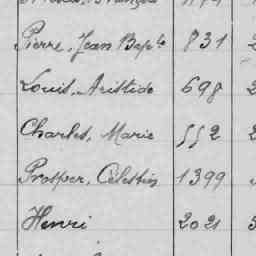 Pierre, Jean Bapte 831 2
Louis, Aristide 698 2
Charles, Marie 552 2
Prosper, Célestin 1399
Henri 2021 3